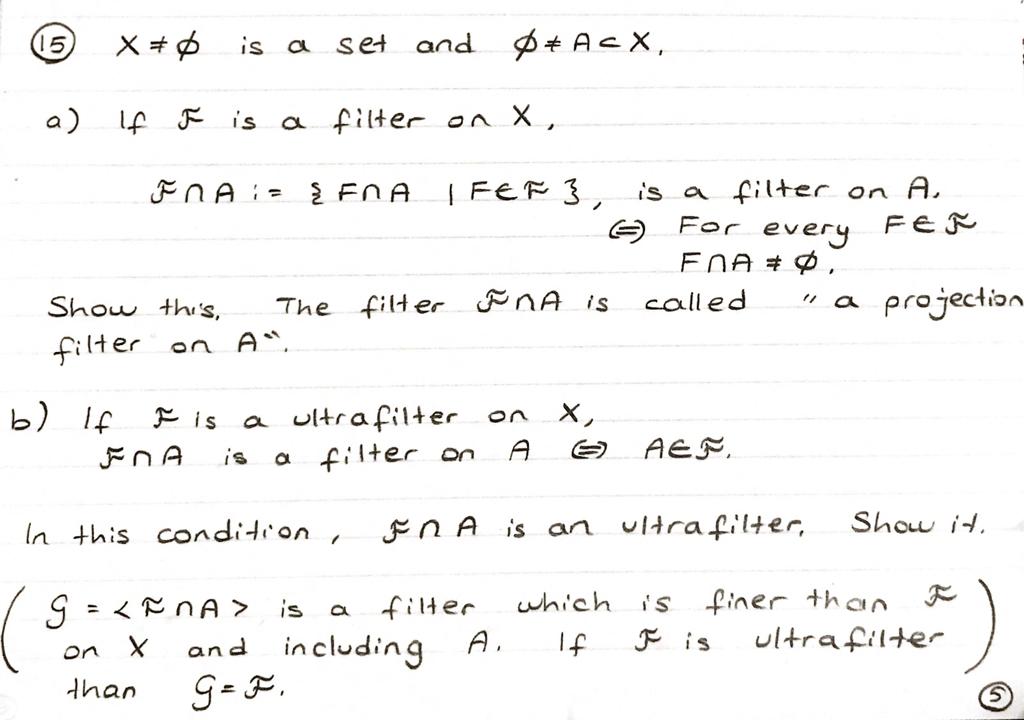 ⑮ X ≠ ∅ is a set and ∅ ≠ A ⊂ X,
a) If F is a filter on X,
F∩A := { F∩A | F∈F }, is a filter on A.
⇔ For every F∈F
F∩A ≠ ∅.
Show this, The filter F∩A is called " a projection
filter on A".
b) If F is a ultrafilter on X,
F∩A is a filter on A ⇔ A∈F.
In this condition, F∩A is an ultrafilter, Show it.
( G = <F∩A> is a filter which is finer than F
on X and including A. If F is ultrafilter
than G = F. )
⑤